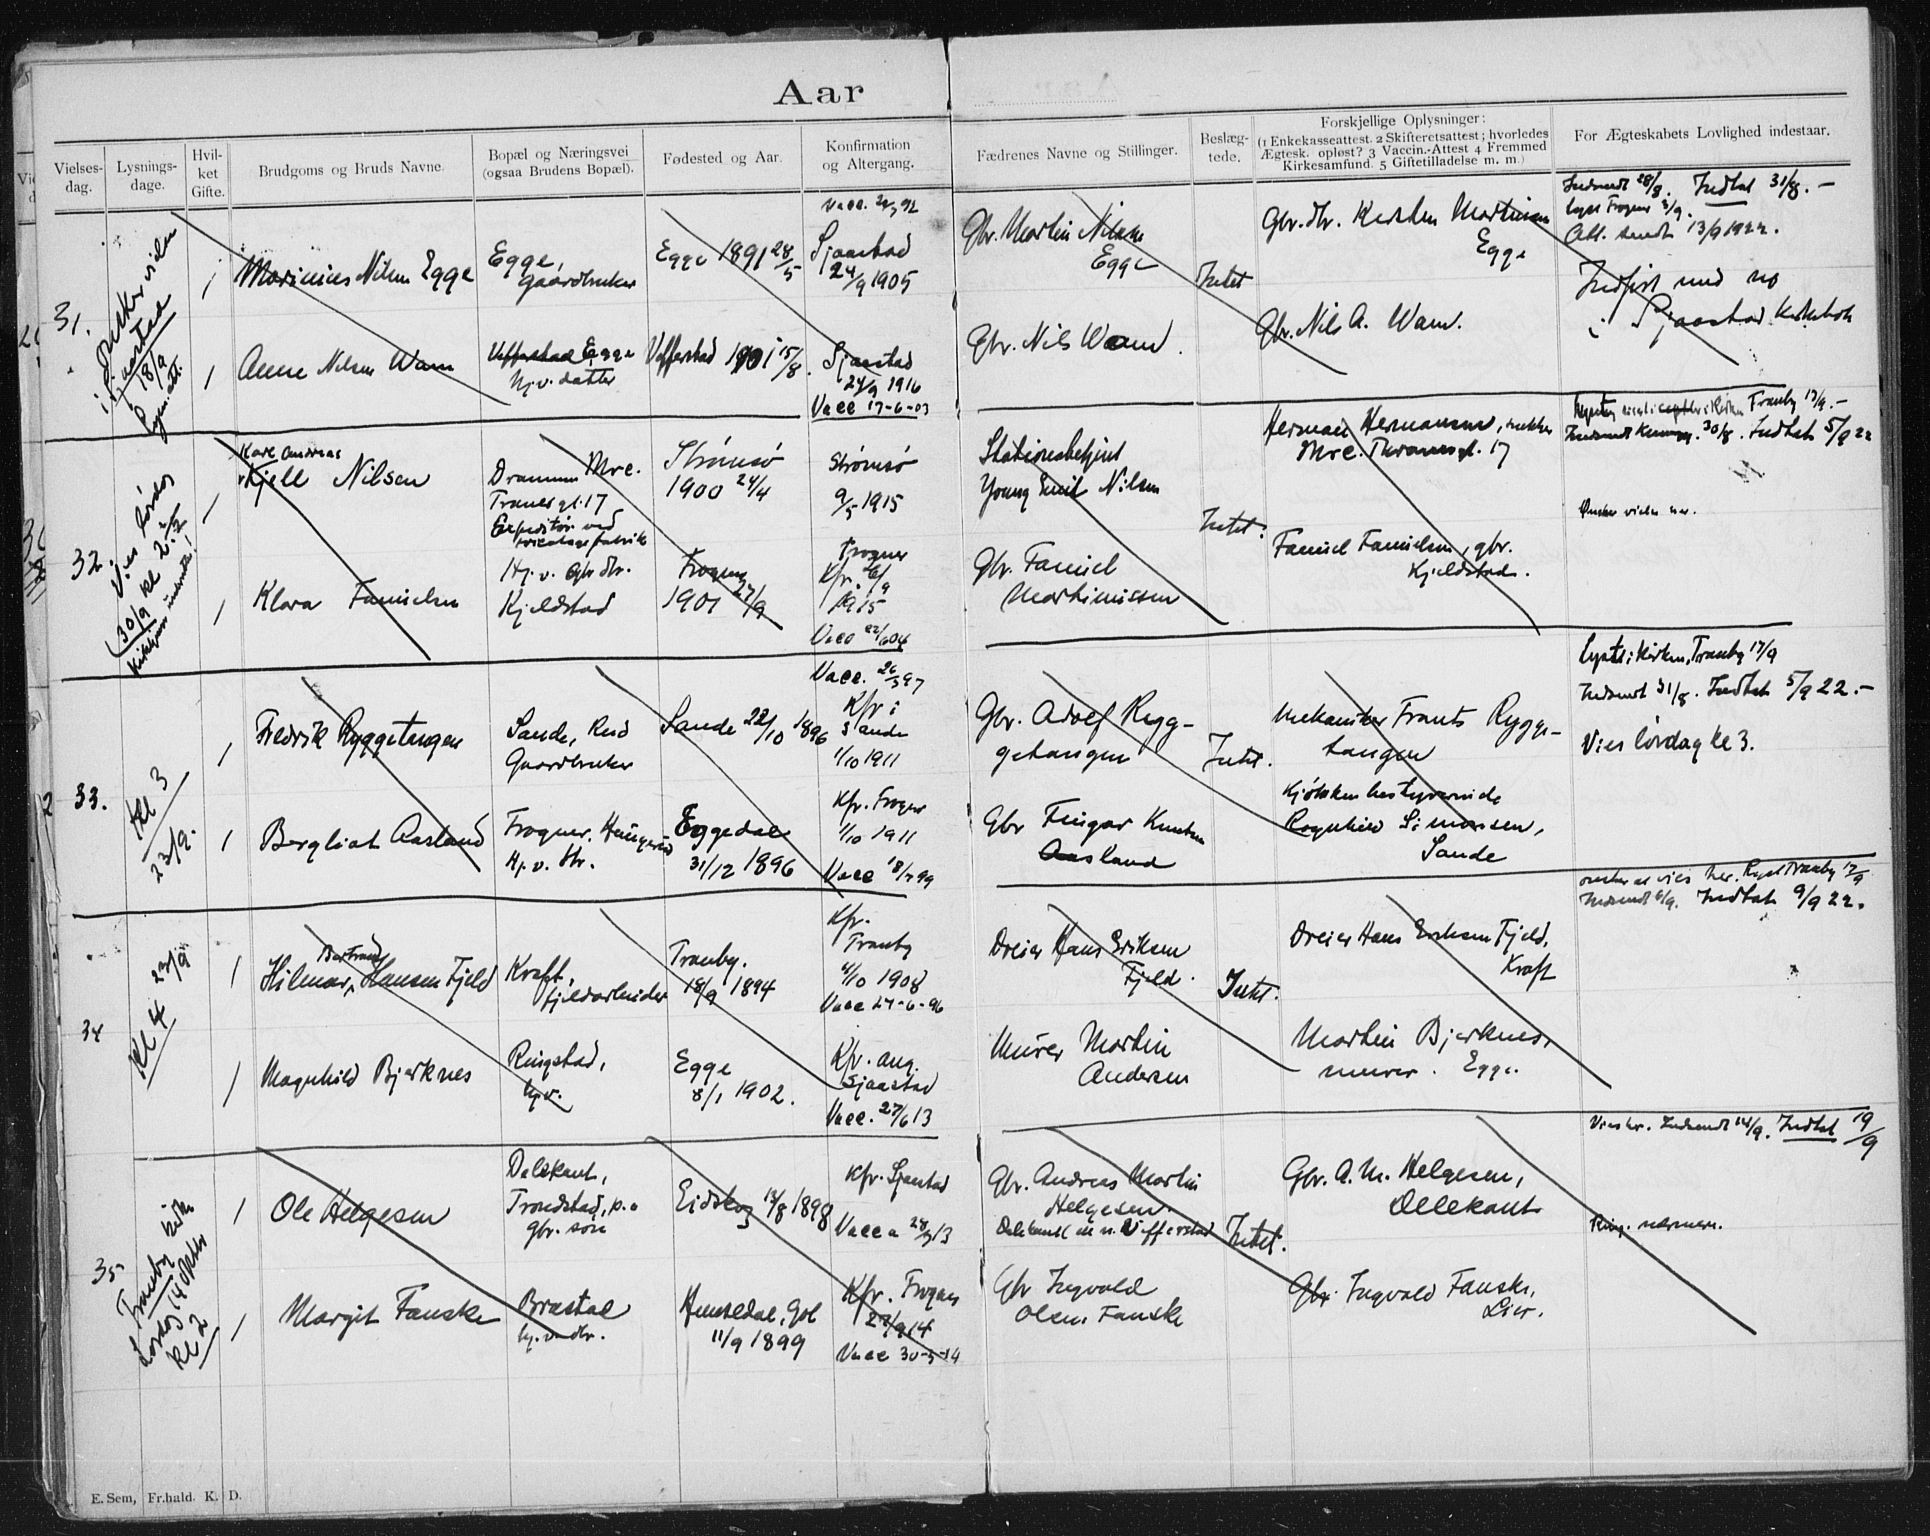 Aar
Vielses-
dag.
Lysnings-
dage.
Hvil-
ket
Gifte.
Brudgoms og Bruds Navne.
Bopæl og Næringsvei
(ogsaa Brudens Bopæl).
Fødested og Aar.
Konfirmation
og Altergang.
Fædrenes Navne og Stillinger.
Beslæg-
tede.
Forskjellige Oplysninger:
(1 Enkekasseattest. 2 Skifteretsattest; hvorledes
Ægtesk. opløst? 3 Vaccin.-Attest 4 Fremmed
Kirkesamfund. 5 Giftetilladelse m. m.)
For Ægteskabets Lovlighed indestaar.
31.
Ønsker vielse
i Sjaastad
18/9
1
Marinius Nilsen Egge
Egge,
Gaardbruker
Egge 1891 28/5
Sjaastad
24/9 1905
Gbr. Martin Nilsen
Egge
Intet
Gbr. dtr. Kirsten Martinsen
Egge
Indsendt 28/8. Indtat 31/8. -
lyst Frogner 3/9.
Att. sendt 13/9 1922.
Indført med no
i Sjaastad kirkebok
1
Anne Nilsen Wam
Uffferstad Egge
hj.v. datter
Vefferstad 1901 15/8
Sjaastad
24/9 1916
Vacc 17-6-03
Gbr. Nils Wam.
Gbr. Nils A. Wam.
32.
Vies lørdag
30/9 kl 2 1/2
1
Kare Andreas
Kjell Nilsen
Drammen Mrc.
Tranes gt. 17
Expeditør ved
tricotagefabrik
Strømsø
1900 24/4
Strømsø
9/5 1915
Stationsbetjent
Young Emil Nilsen
Intet.
Herman Hermansen, snekker
Mrc. Thranesgt. 17
Tranby 17/9. -
Indsendt 30/8. Indtat 5/9 22
Ønsker vielse her.
1
Klara Famielsen
Hj. v. Gbr. dtr.
Kjeldstad
Frogner
1901 27/9
Frogner
Kfr. 26/9
1915
Vacc 22/6 04
Gbr. Famiel
Martiniussen
Famiel Famielsen, gbr.
Kjeldstad.
33.
Kl 3
23/9.
1
Fredrik Ryggetangen
Sande, Reid
Gaardbruker
Sande 22/10 1896
Vacc. 26/5 97
Kfr i
Sande
1/10 1911
Gbr. Adolf Rygg-
getangen
Intet.
Mekaniker Frants Rygge-
tangen
Lyst i kirken, Tranby 17/9
Indsendt 31/8. Indtat 5/9 22. -
Vies lørdag kl 3.
1
Bergliot Aasland
Frogner,
Hj. v. Str.
Eggedal
31/12 1896
Kfr. Frogner
1/10 1911
Vacc 18/7 99
Gbr Fingar Knutsen
Aasland
Kjøkkenbestyrerinde
Ragnhild Simonsen,
Sande
34
Kl 4 23/9
1
Bertrand
Hilmar, Hansen Fjeld
Kraft,
fjeldarbeider
Tranby.
18/9 1894
Kfr.
Tranby
4/10 1908
Vacc 27-6-96
Dreier Hans Eriksen
Fjeld.
Intet.
Dreier Hans Eriksen Fjeld,
Kraft
ønsker at vies her. Lyst Tranby 17/9
Indsendt 6/9. Indtat 9/9 22.
1
Magnhild Bjerknes
Ringstad,
hj.v.
Egge
8/1 1902.
Kfr. aug.
Sjaastad
Vacc. 27/6 13
Murer Martin
Andersen
Martin Bjerknes,
murer. Egge.
35
Tranby kirke
Lørdag 14 Oktbr
Kl 2
1
Ole Helgesen
Delekant,
Trondstad, p.a
gbr. søn
Eidskog 13/8 1898
Kfr. Sjaastad
Vacc a
Gbr. Andreas Martin
Helgesen.
Delekant m n. Vefferstad
Intet.
Gbr. A. M. Helgesen,
Delekant
Vies her. Indsendt 14/9. Indtat 19/9
Ring. nærmere.
1
Margit Fauske
Brastad
hj. v. dtr.
Hemsedal, Gol
11/9 1899
Kfr. Frogner
27/9 14
Vacc 30-5-14
Gbr Ingvald
Olsen Fauske
Gbr. Ingvald Fauske,
Lier.
E. Sem, Fr.hald. K. D.